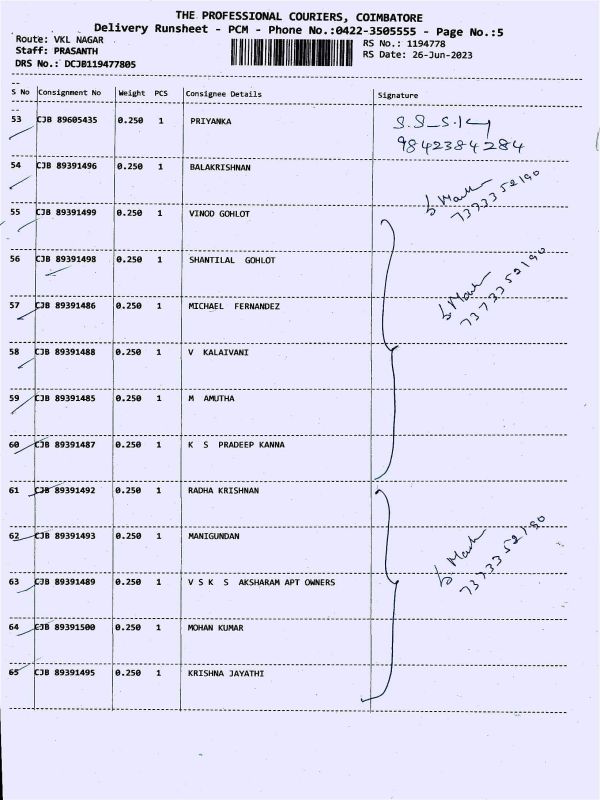 THE PROFESSIONAL COURIERS, COIMBATORE
Delivery Runsheet - PCM - Phone No.:0422-3505555 - Page No.:5
Route: VKL NAGAR
RS No.: 1194778
Staff: PRASANTH
RS Date: 26-Jun-2023
DRS No.: DCJB119477805
S No Consignment No Weight PCS Consignee Details Signature
53 CJB 89605435 0.250 1 PRIYANKA
9842384284
54 CJB 89391496 0.250 1 BALAKRISHNAN
7373352190
55 CJB 89391499 0.250 1 VINOD GOHLOT
56 CJB 89391498 0.250 1 SHANTILAL GOHLOT
7373352190
57 CJB 89391486 0.250 1 MICHAEL FERNANDEZ
58 CJB 89391488 0.250 1 V KALAIVANI
59 CJB 89391485 0.250 1 M AMUTHA
60 CJB 89391487 0.250 1 K S PRADEEP KANNA
61 CJB 89391492 0.250 1 RADHA KRISHNAN
62 CJB 89391493 0.250 1 MANIGUNDAN
7373352190
63 CJB 89391489 0.250 1 V S K S AKSHARAM APT OWNERS
64 CJB 89391500 0.250 1 MOHAN KUMAR
65 CJB 89391495 0.250 1 KRISHNA JAYATHI